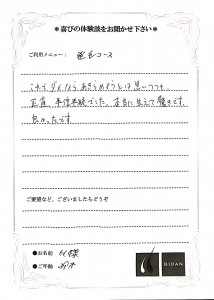 ＊喜びの体験談をお聞かせ下さい＊
ご利用メニュー： 発毛コース
これでダメならあきらめようとは思いつつも、
正直、半信半疑でした。本当に生えて驚きです。
良かったです
ご要望など、ございましたらどうぞ
●お名前 様
●ご年齢 才
BIDAN